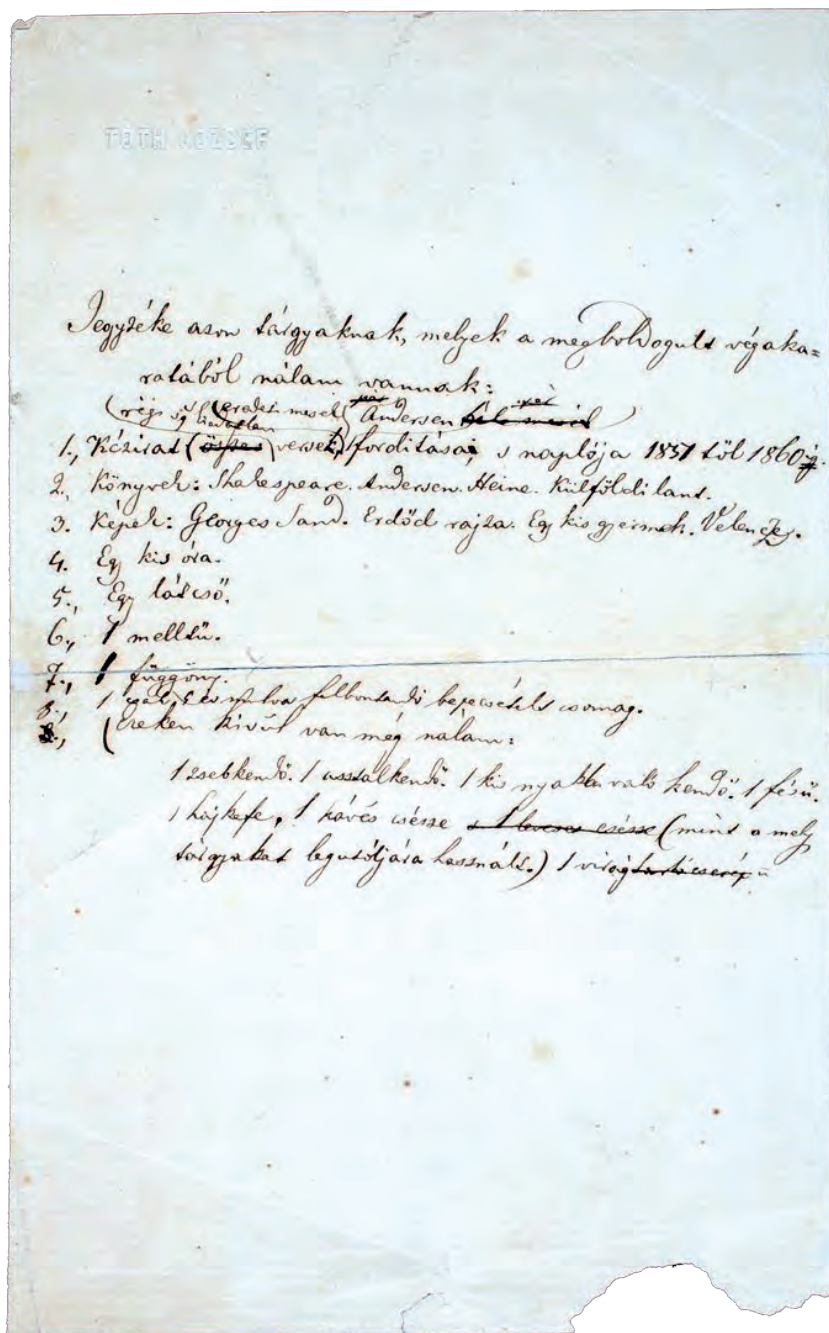 TOTH JOZSEF
Jegyzéke azon tárgyaknak, melyek a megboldogult végaka=
ratából nálam vannak:
(régi új kiadatlan (eredeti mesék) Andersen
1., Kézirat (össes) versek, forditásai, s naplója 1857 töl 1860ig.
2., Könyvek: Shakespeare. Andersen. Heine. Külföldi lant.
3. Képek: Georges Sand. Erdőd rajza. Egy kis gyermek. Velencze.
4. Egy kis óra.
5., Egy látcső.
6., 1 melltü.
7., 1 függöny.
8., 1 felbontandó bepecsételt csomag.
8., (ezeken kivűl van még nálam:
1 zsebkendő. 1 asztalkendő. 1 kis nyakba való kendő. 1 fésü.
1 hajkefe, 1 kávés csésze s 1 leveses csésze (mint a mely
tárgyakat legutóljára használt.) 1 virágtartó cserép